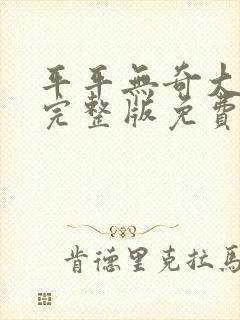 平平無奇大
完整版免費
肯德里克拉馬